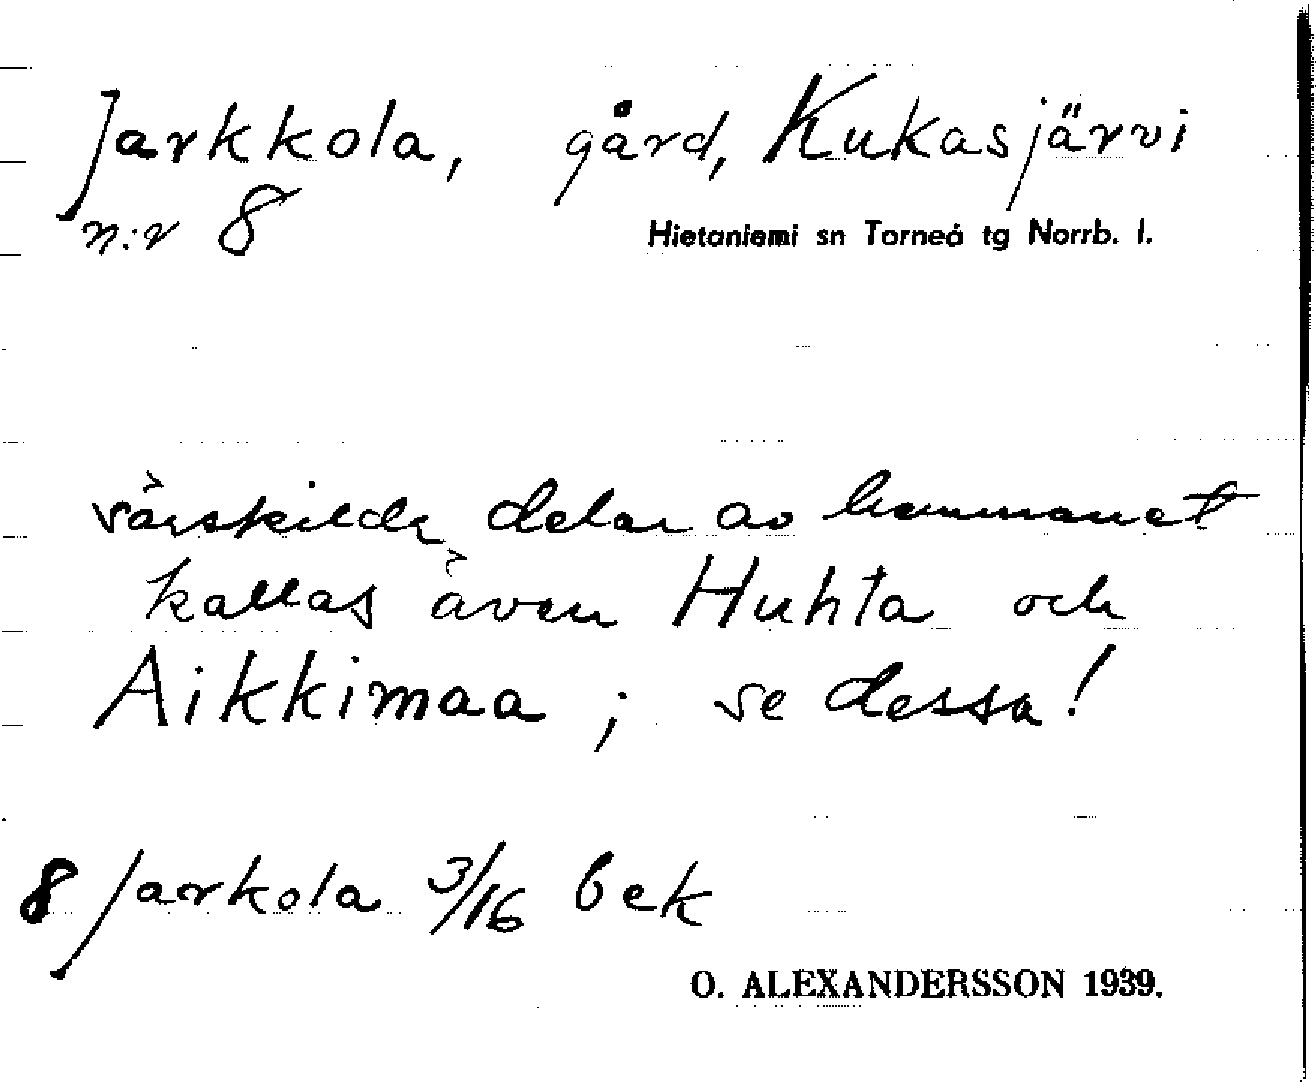 Jarkkola, gård, Kukasjärvi
n:r 8
Hietaniemi sn Torneå tg Norrb. l.
särskilda delar av hemmanet
kallas även Huhta och
Aikkimaa ; se dessa!
8 Jarkola 3/16 bek
O. ALEXANDERSSON 1939.